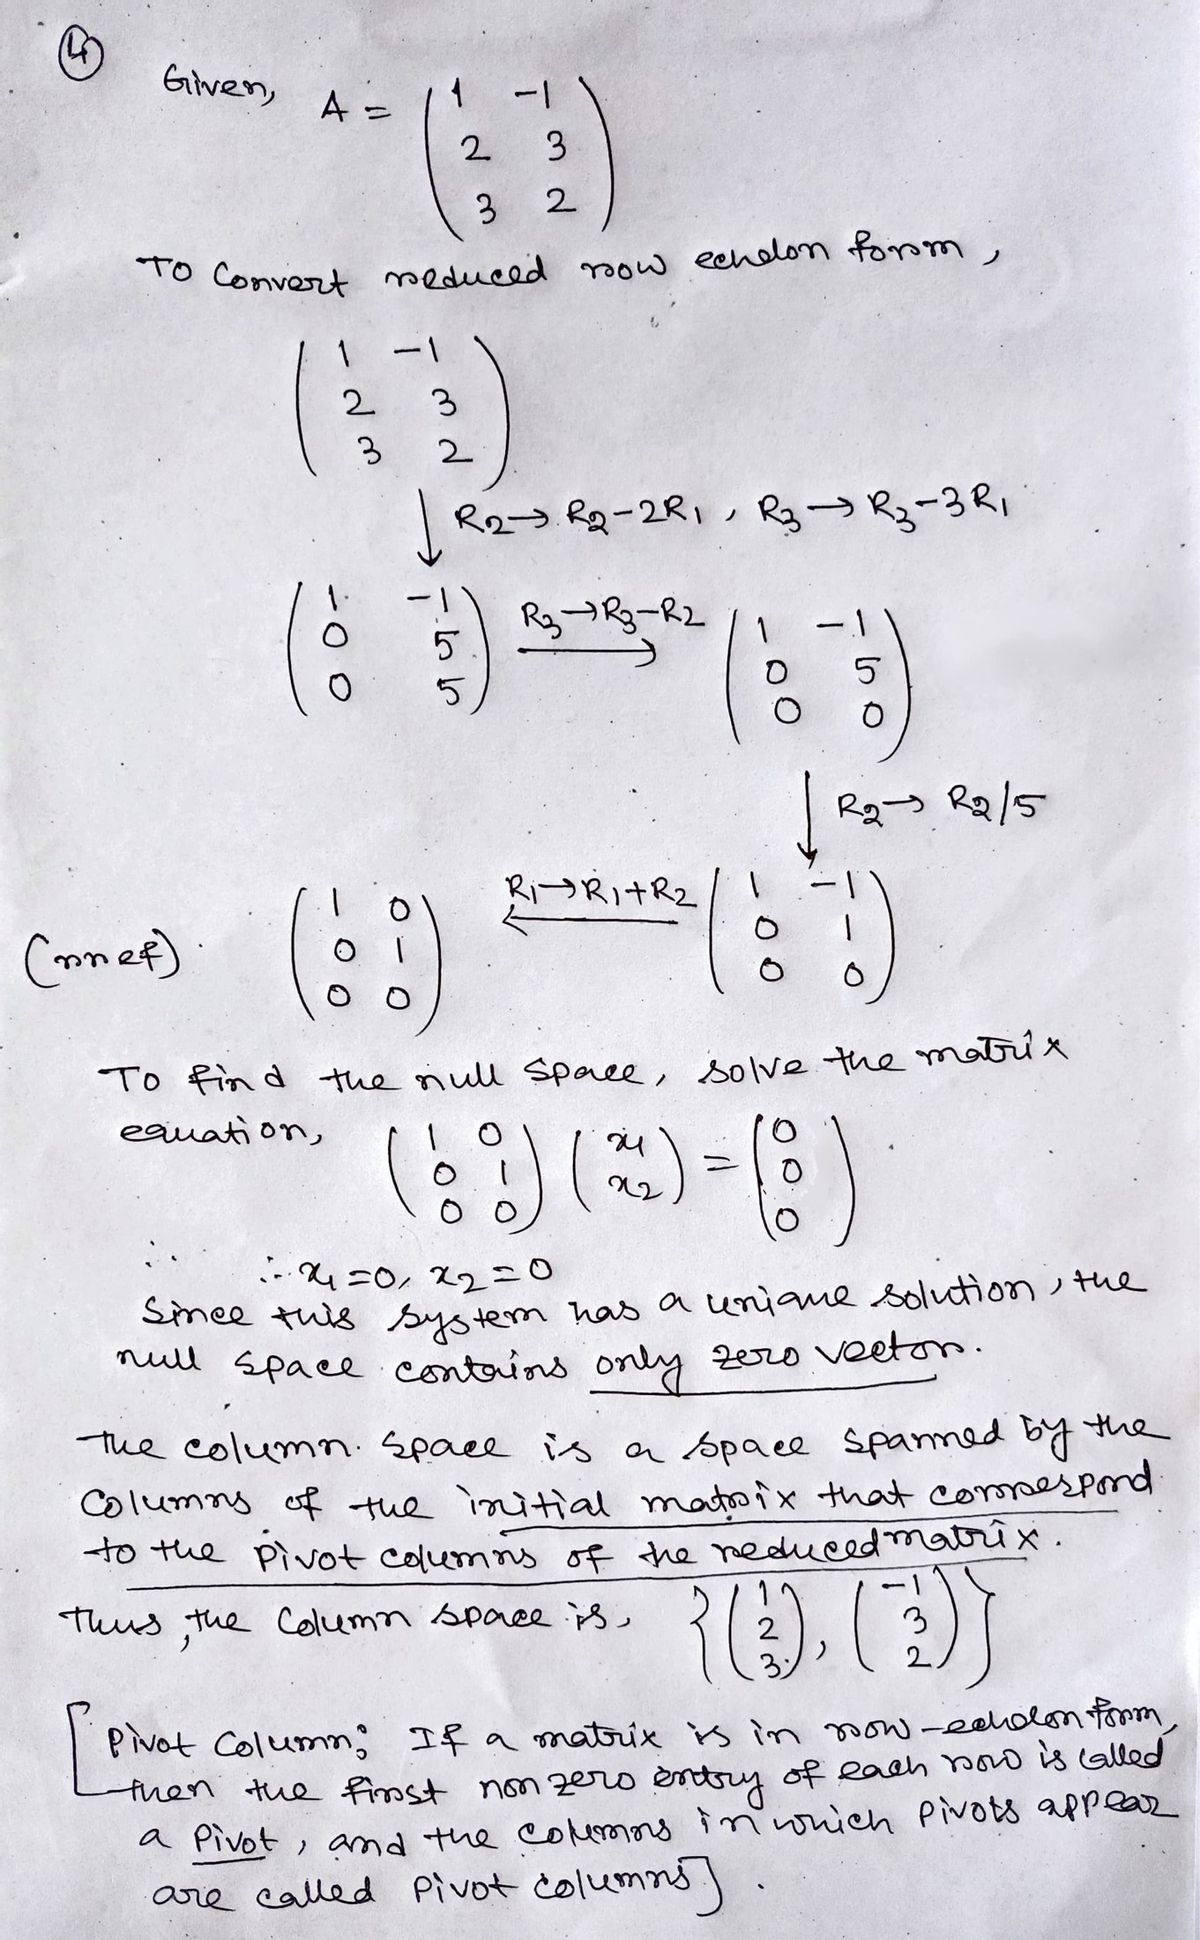 4
Given, A = ( 1 -1
2 3
3 2 )
To convert reduced row echelon form,
( 1 -1
2 3
3 2 )
↓ R2 → R2-2R1, R3 → R3-3R1
( 1 -1
0 5
0 5 ) R3→R3-R2 → ( 1 -1
0 5
0 0 )
↓ R2 → R2/5
(rref) ( 1 0
0 1
0 0 ) ← R1→R1+R2 ( 1 -1
0 1
0 0 )
To find the null space, solve the matrix
equation, ( 1 0
0 1
0 0 ) ( x1
x2 ) = ( 0
0
0 )
∴ x1=0, x2=0
Since this system has a unique solution, the
null space contains only zero vector.
The column space is a space spanned by the
columns of the initial matrix that correspond
to the pivot columns of the reduced matrix.
Thus, the column space is, { ( 1
2
3 ), ( -1
3
2 ) }
[Pivot Column: If a matrix is in row-echolon form,
then the first nonzero entry of each row is called
a Pivot, and the columns in which pivots appear
are called Pivot columns].